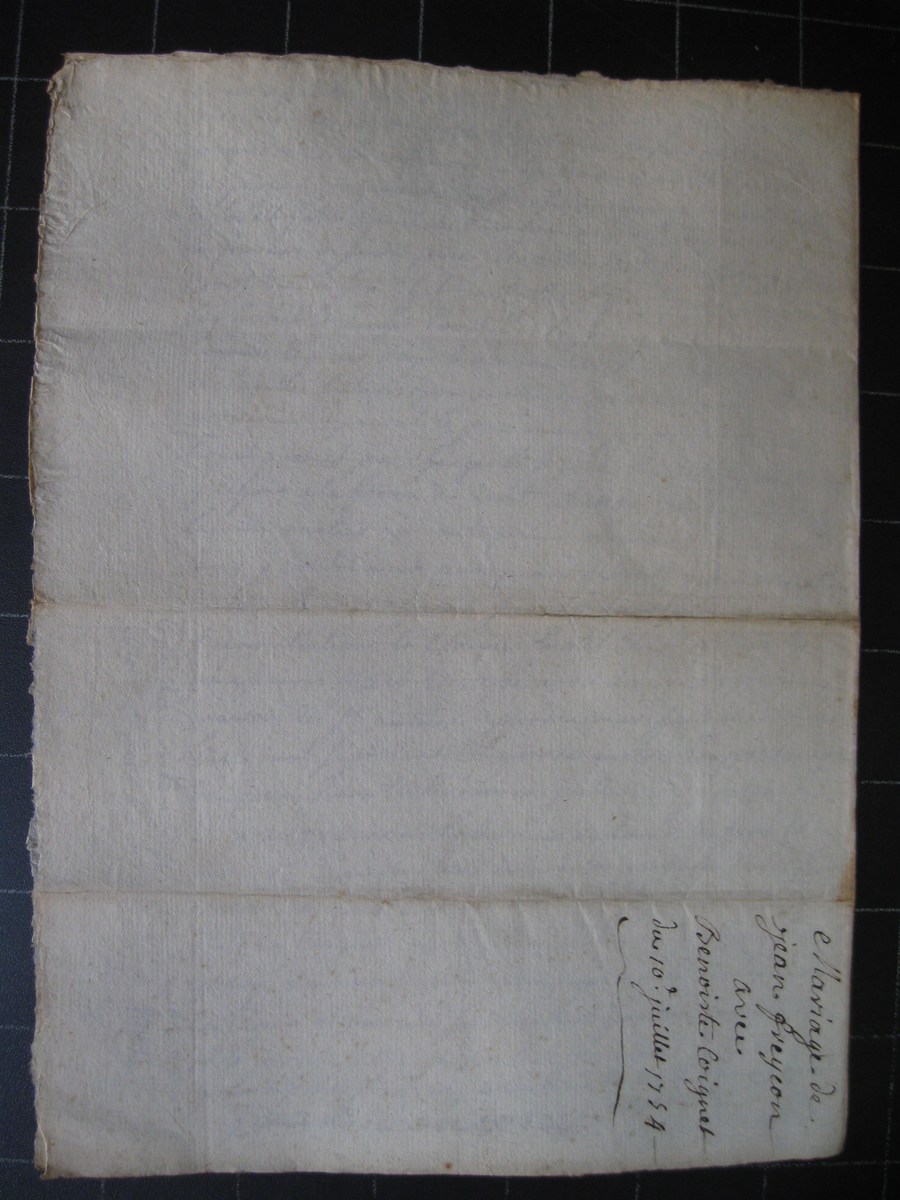 Mariage de
jean freycon
avec
Benoiste Coignet
du 10e juillet 1754